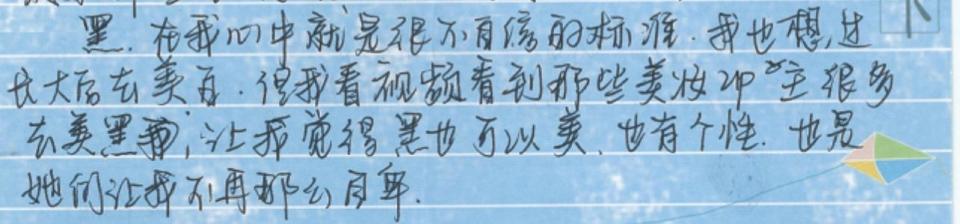 黑.在我心中就是很不自信的标准.我也想过
长大后去美白.但我看视频看到那些美妆up主很多
去美黑,让我觉得黑也可以美、也有个性.也是
她们让我不再那么自卑.